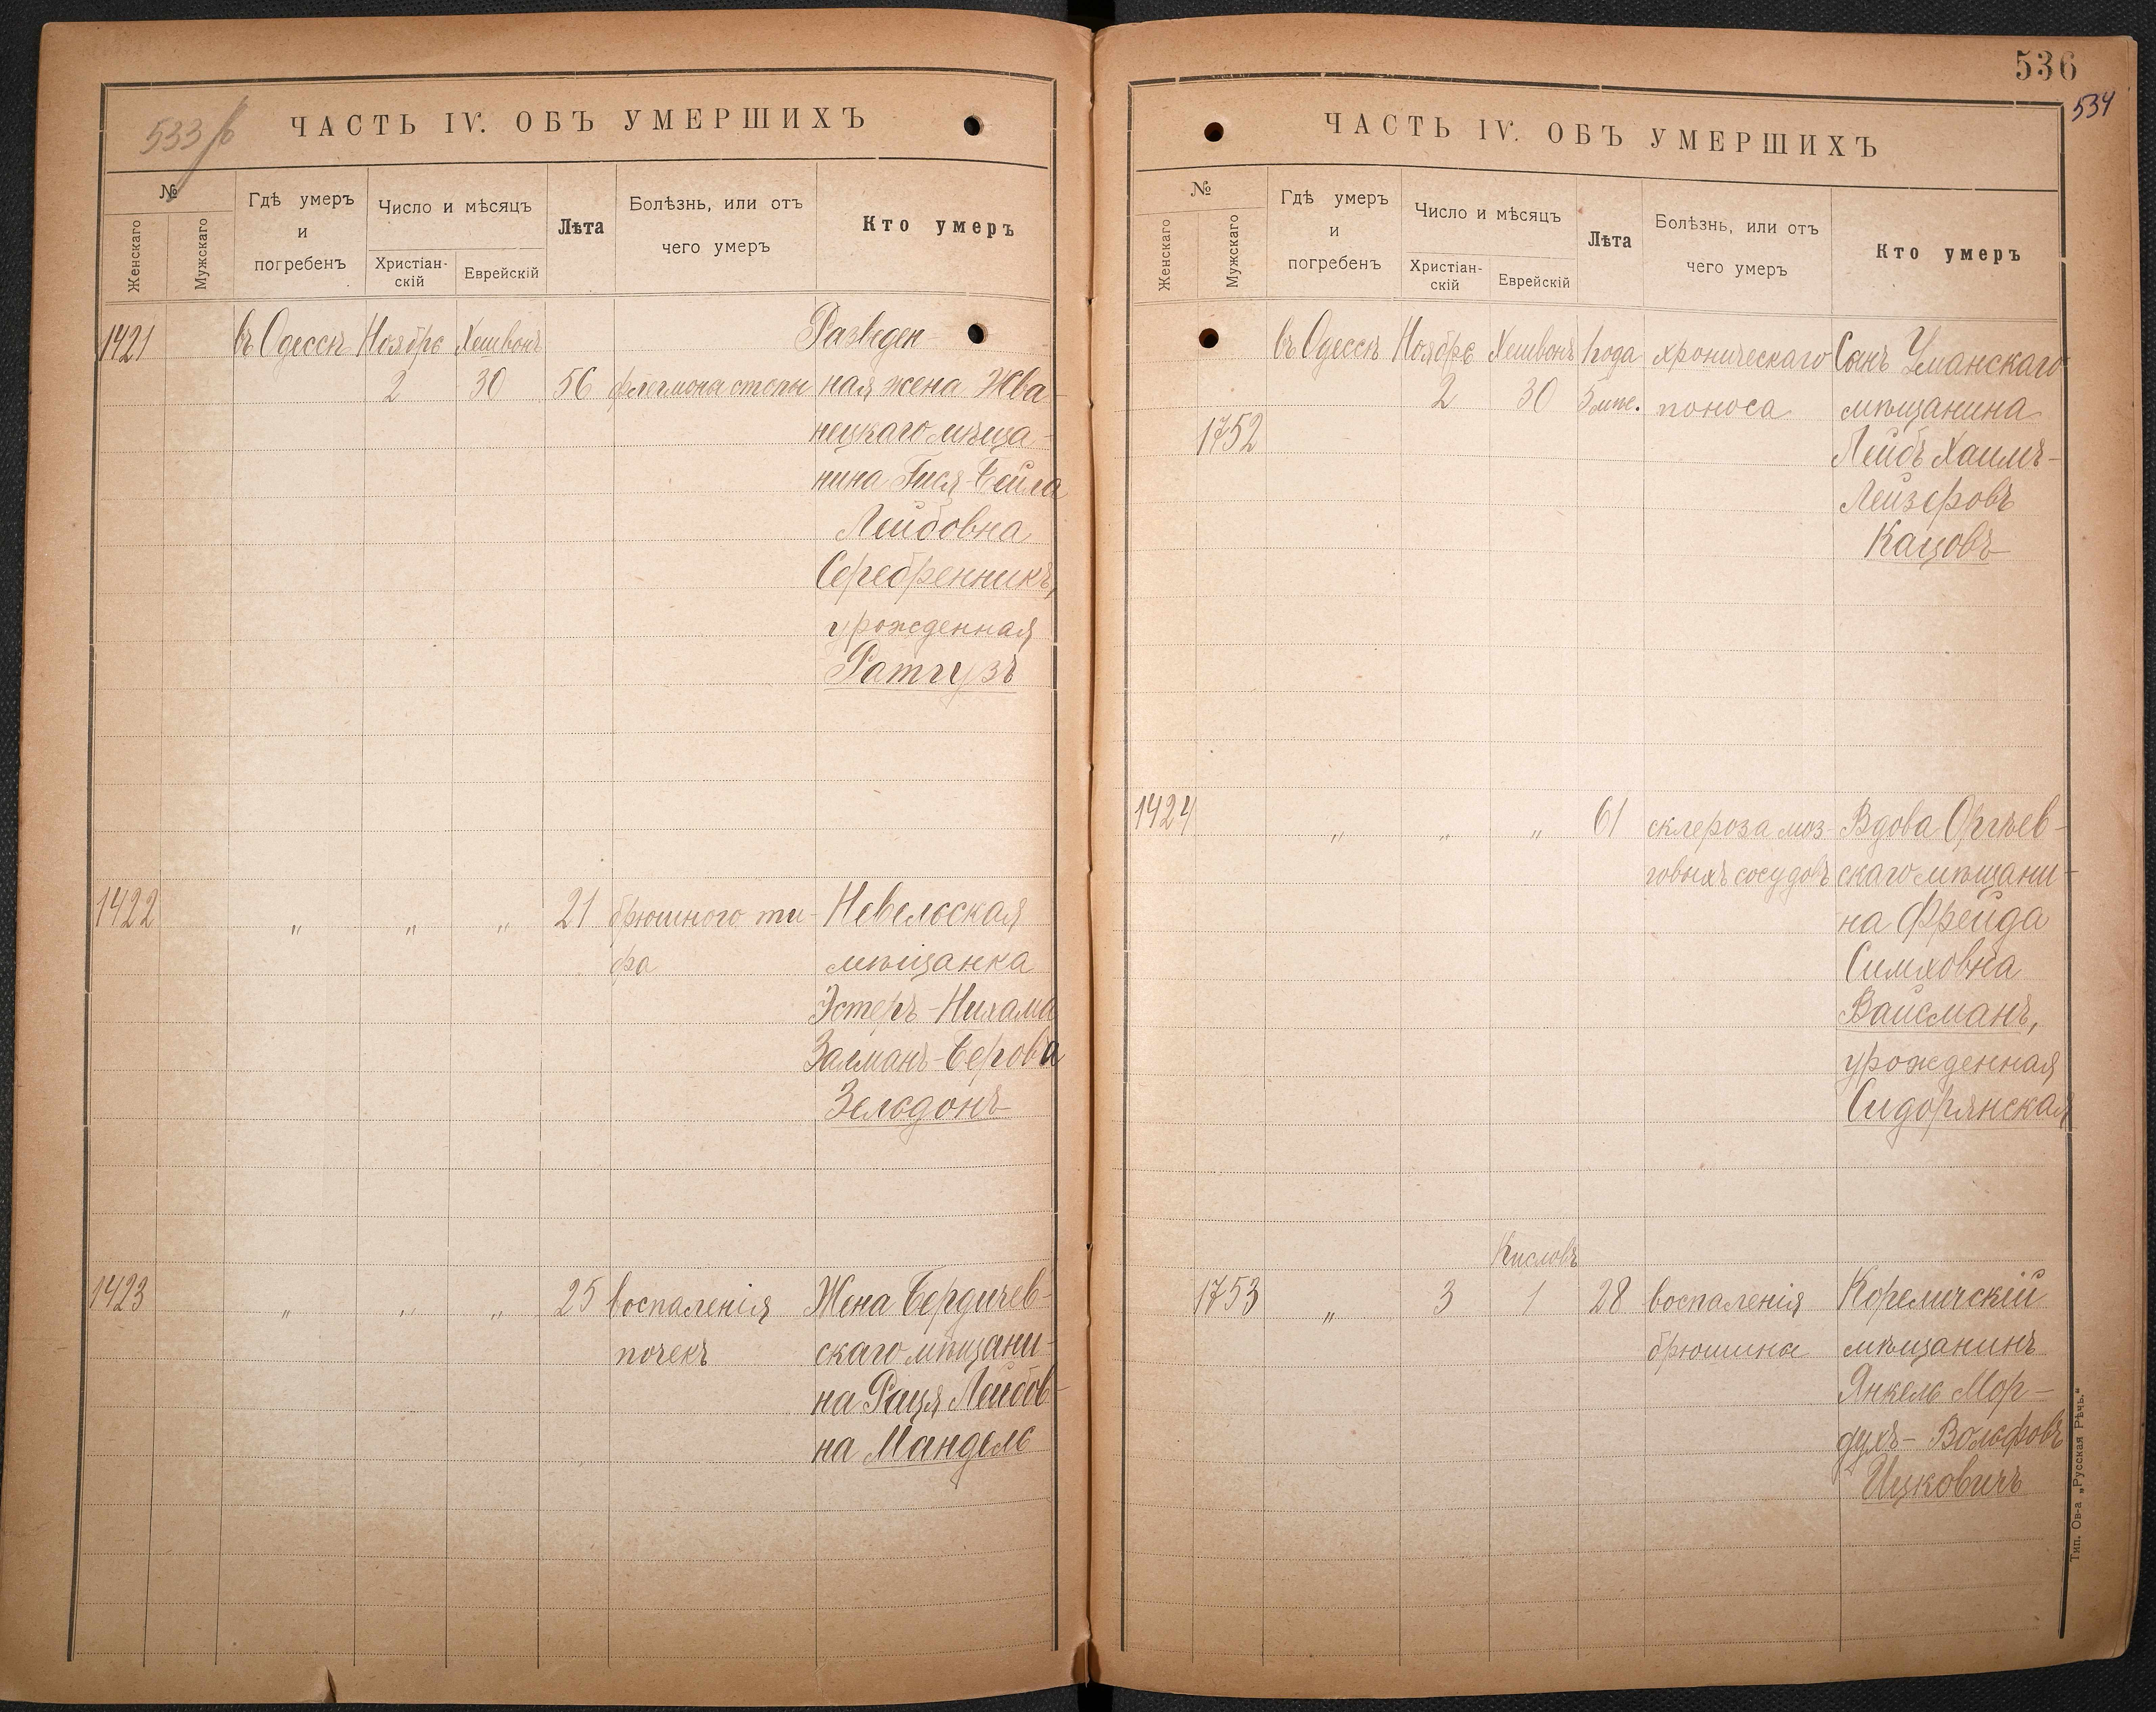 533 б
ЧАСТЬ IV. ОБЪ УМЕРШИХЪ
№
Женскаго
Мужскаго
Гдѣ умеръ
и
погребенъ
Число и мѣсяцъ
Христіан-
скій
Еврейскій
Лѣта
Болѣзнь, или отъ
чего умеръ
Кто умеръ
1421 въ Одессѣ Ноябрь Хешвонъ Разведен-
2 30 56 флегмоны стопы ная жена Жва-
нецкаго мѣща-
нина Гися-Бейла
Лейбовна
Серебренникъ,
урожденная
Ратгузъ
1422 " " " 21 брюшного ти- Невельская
фа мѣщанка
Эстеръ-Нихама
Залманъ-Берова
Зельдонъ
1423 " " " 25 воспаленія Жена Бердичев-
почекъ скаго мѣщани-
на Раця Лейбов-
на Мандель
536
534
ЧАСТЬ IV. ОБЪ УМЕРШИХЪ
№
Женскаго
Мужскаго
Гдѣ умеръ
и
погребенъ
Число и мѣсяцъ
Христіан-
скій
Еврейскій
Лѣта
Болѣзнь, или отъ
чего умеръ
Кто умеръ
въ Одессѣ Ноябрь Хешвонъ 1 года хроническаго Сынъ Уманскаго
2 30 5 мѣс. поноса мѣщанина
1752 Лейбъ Хаимъ-
Лейзеровъ
Кацовъ
1424 " " " 61 склероза моз- Вдова Оргѣев-
говыхъ сосудовъ скаго мѣщани-
на Фрейда
Симховна
Вайсманъ,
урожденная
Сидорянская
Кисловъ
1753 " 3 1 28 воспаленія Кореличскій
брюшины мѣщанинъ
Янкель Мор-
духъ-Вольфовъ
Ицковичъ
Тип. Ов-а „Русская Рѣчь."